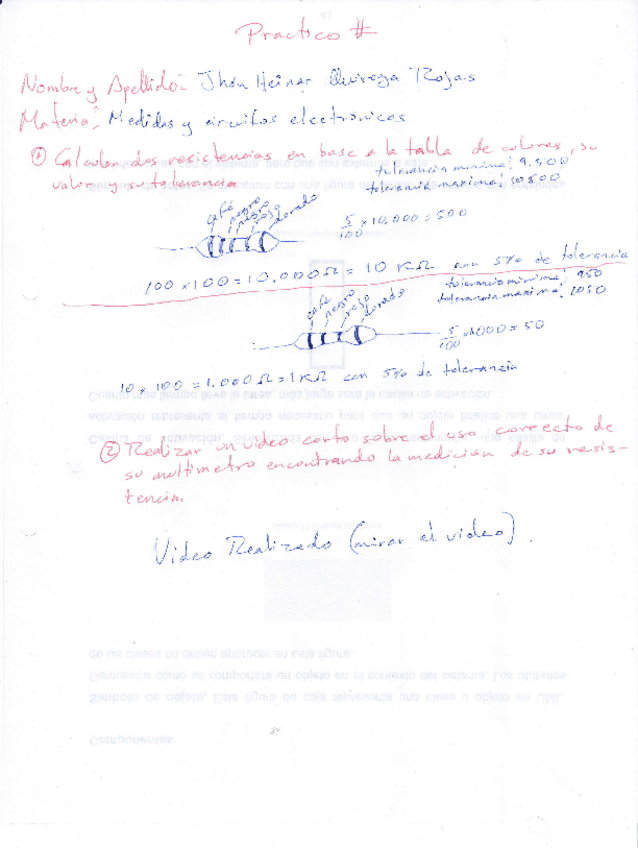 Practico #
Nombre y Apellido: Jhon Heinar Quiroga Rojas
Materia: Medidas y circuitos electronicos
① Calcular dos resistencias en base a la tabla de colores, su
valor y su tolerancia
tolerancia minima: 9.500
tolerancia maxima: 10500
café negro negro rojo dorado
5/100 x 10,000 = 500
100 x 100 = 10.000Ω = 10 KΩ con 5% de tolerancia
tolerancia minima: 950
tolerancia maxima: 1050
café negro rojo dorado
5/100 x 1000 = 50
10 x 100 = 1.000Ω = 1KΩ con 5% de tolerancia
② Realizar un video corto sobre el uso correcto de
su multimetro encontrando la medicion de su resis-
tencia.
Video Realizado (mirar el video).